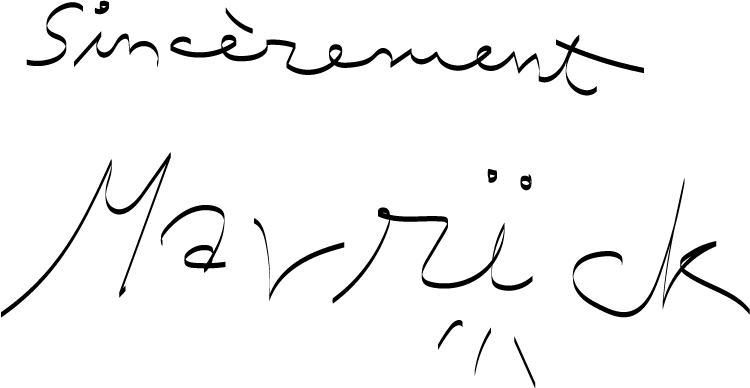 Sincèrement
Mavrïck